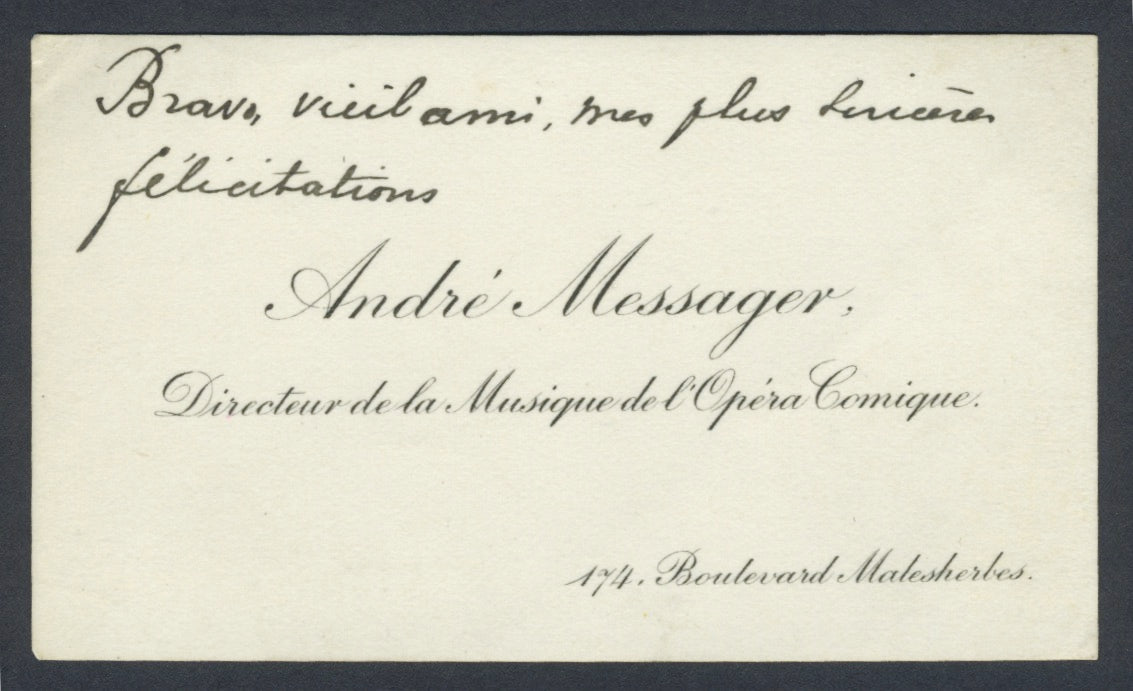 Bravo, vieil ami, mes plus sincères
félicitations
André Messager,
Directeur de la Musique de l'Opéra Comique.
174. Boulevard Malesherbes.